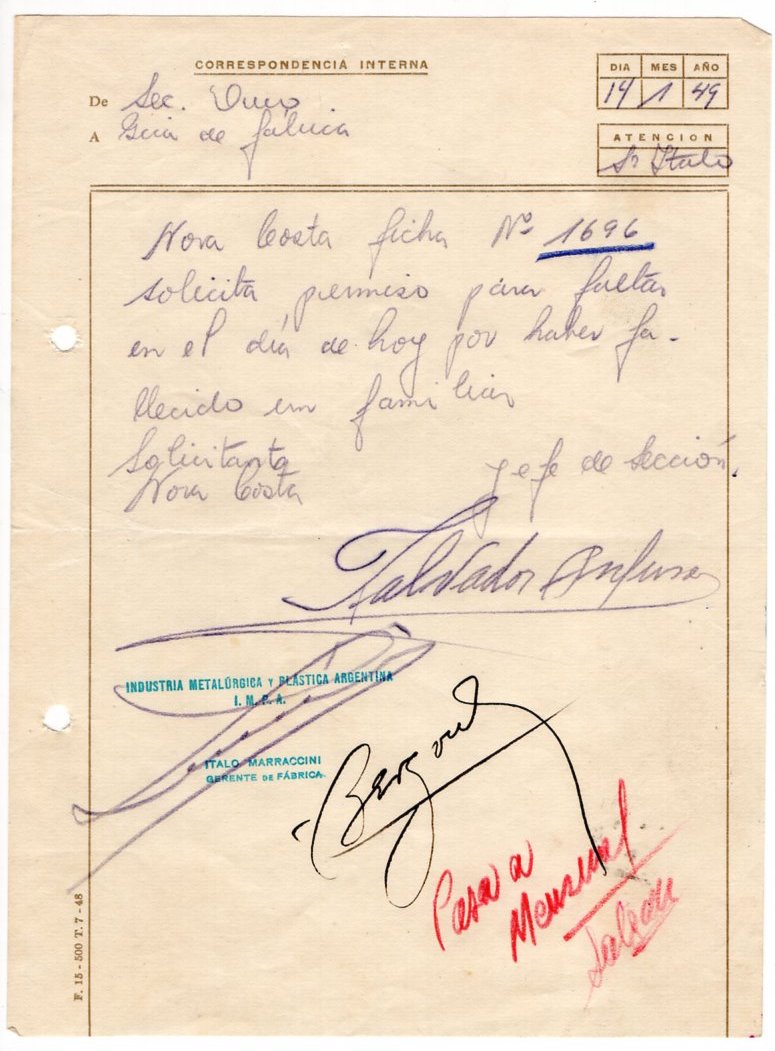 CORRESPONDENCIA INTERNA
DIA MES AÑO
14 1 49
De Sec.
A de fábrica
ATENCION
Sr Italo
Nora Costa ficha Nº 1696
solicita permiso para faltar
en el día de hoy por haber fa-
llecido un familiar
Solicitanta
Nora Costa
Jefe de Sección.
Salvador
INDUSTRIA METALÚRGICA Y PLÁSTICA ARGENTINA
I. M. P. A.
ITALO MARRACCINI
GERENTE DE FÁBRICA.
Pasa a
Mensual
F. 15 - 500 T. 7 - 48